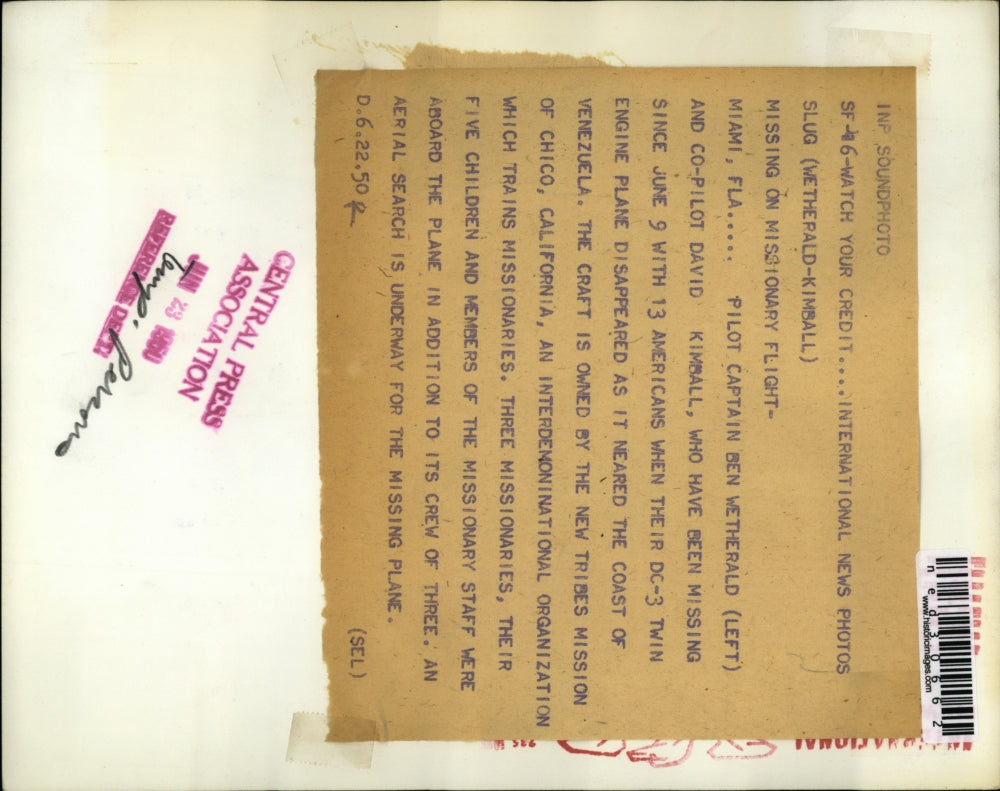 INP SOUNDPHOTO
SF-6-WATCH YOUR CREDIT....INTERNATIONAL NEWS PHOTOS
SLUG (WETHERALD-KIMBALL)
MISSING ON MISSIONARY FLIGHT-
MIAMI, FLA.... PILOT CAPTAIN BEN WETHERALD (LEFT)
AND CO-PILOT DAVID KIMBALL, WHO HAVE BEEN MISSING
SINCE JUNE 9 WITH 13 AMERICANS WHEN THEIR DC-3 TWIN
ENGINE PLANE DISAPPEARED AS IT NEARED THE COAST OF
VENEZUELA. THE CRAFT IS OWNED BY THE NEW TRIBES MISSION
OF CHICO, CALIFORNIA, AN INTERDEMONINATIONAL ORGANIZATION
WHICH TRAINS MISSIONARIES. THREE MISSIONARIES, THEIR
FIVE CHILDREN AND MEMBERS OF THE MISSIONARY STAFF WERE
ABOARD THE PLANE IN ADDITION TO ITS CREW OF THREE. AN
AERIAL SEARCH IS UNDERWAY FOR THE MISSING PLANE.
D.6.22.50 (SEL)
CENTRAL PRESS
ASSOCIATION
JUN 23
REFERENCE DEPT.
ned30662
www.historicimages.com
INTERNATIONAL